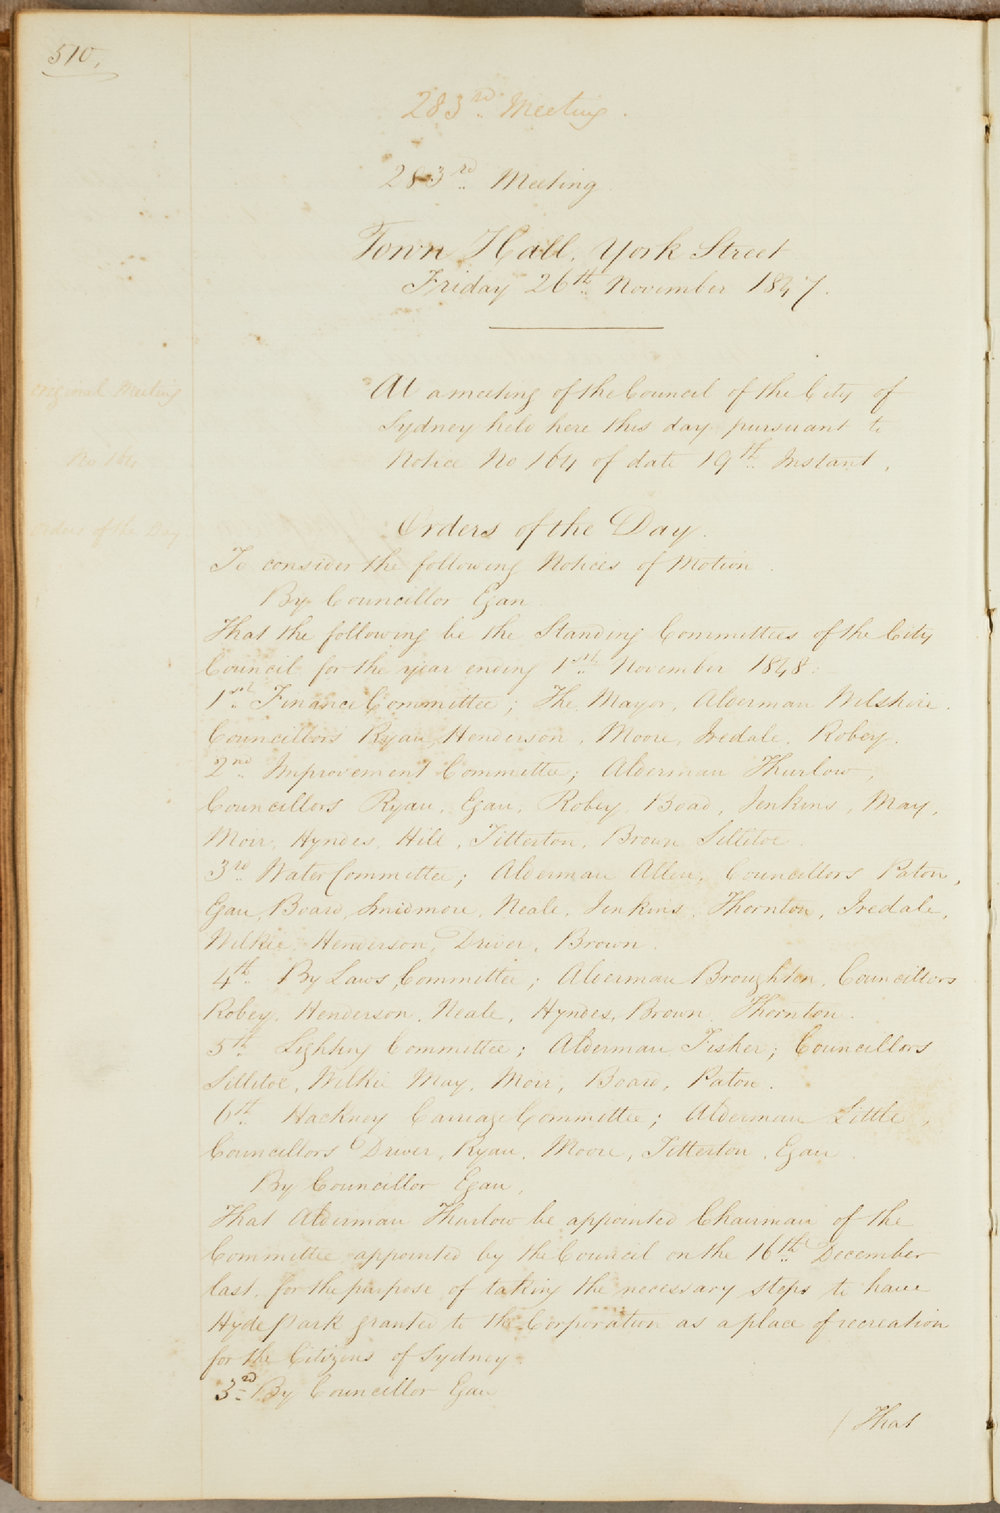 510.
283rd Meeting.
283rd Meeting
Town Hall, York Street
Friday 26th November 1847.
Original Meeting
No 164
Orders of the Day
At a meeting of the Council of the City of
Sydney held here this day pursuant to
Notice No 164 of date 19th Instant,
Orders of the Day.
To consider the following Notices of Motion.
By Councillor Egan
That the following be the Standing Committees of the City
Council for the year ending 1st November 1848.
1st Finance Committee; The Mayor, Alderman Wilshire,
Councillors Ryan, Henderson, Moore, Iredale, Robey.
2nd Improvement Committee; Alderman Thurlow,
Councillors Ryan, Egan, Robey, Board, Jenkins, May,
Moir, Hyndes, Hill, Titterton, Brown, Sillitoe.
3rd Water Committee; Alderman Allen, Councillors Paton,
Egan, Board, Smidmore, Neale, Jenkins, Thornton, Iredale,
Wilkie, Henderson, Driver, Brown.
4th By Laws Committee; Alderman Broughton, Councillors
Robey, Henderson, Neale, Hyndes, Brown, Thornton.
5th Lighting Committee; Alderman Fisher; Councillors
Sillitoe, Wilkie, May, Moir, Board, Paton.
6th Hackney Carriage Committee; Alderman Little,
Councillors Driver, Ryan, Moore, Titterton, Egan.
By Councillor Egan,
That Alderman Thurlow be appointed Chairman of the
Committee appointed by the Council on the 16th December
last, for the purpose of taking the necessary steps to have
Hyde Park granted to the Corporation as a place of recreation
for the Citizens of Sydney.
3rd By Councillor Egan
/ That